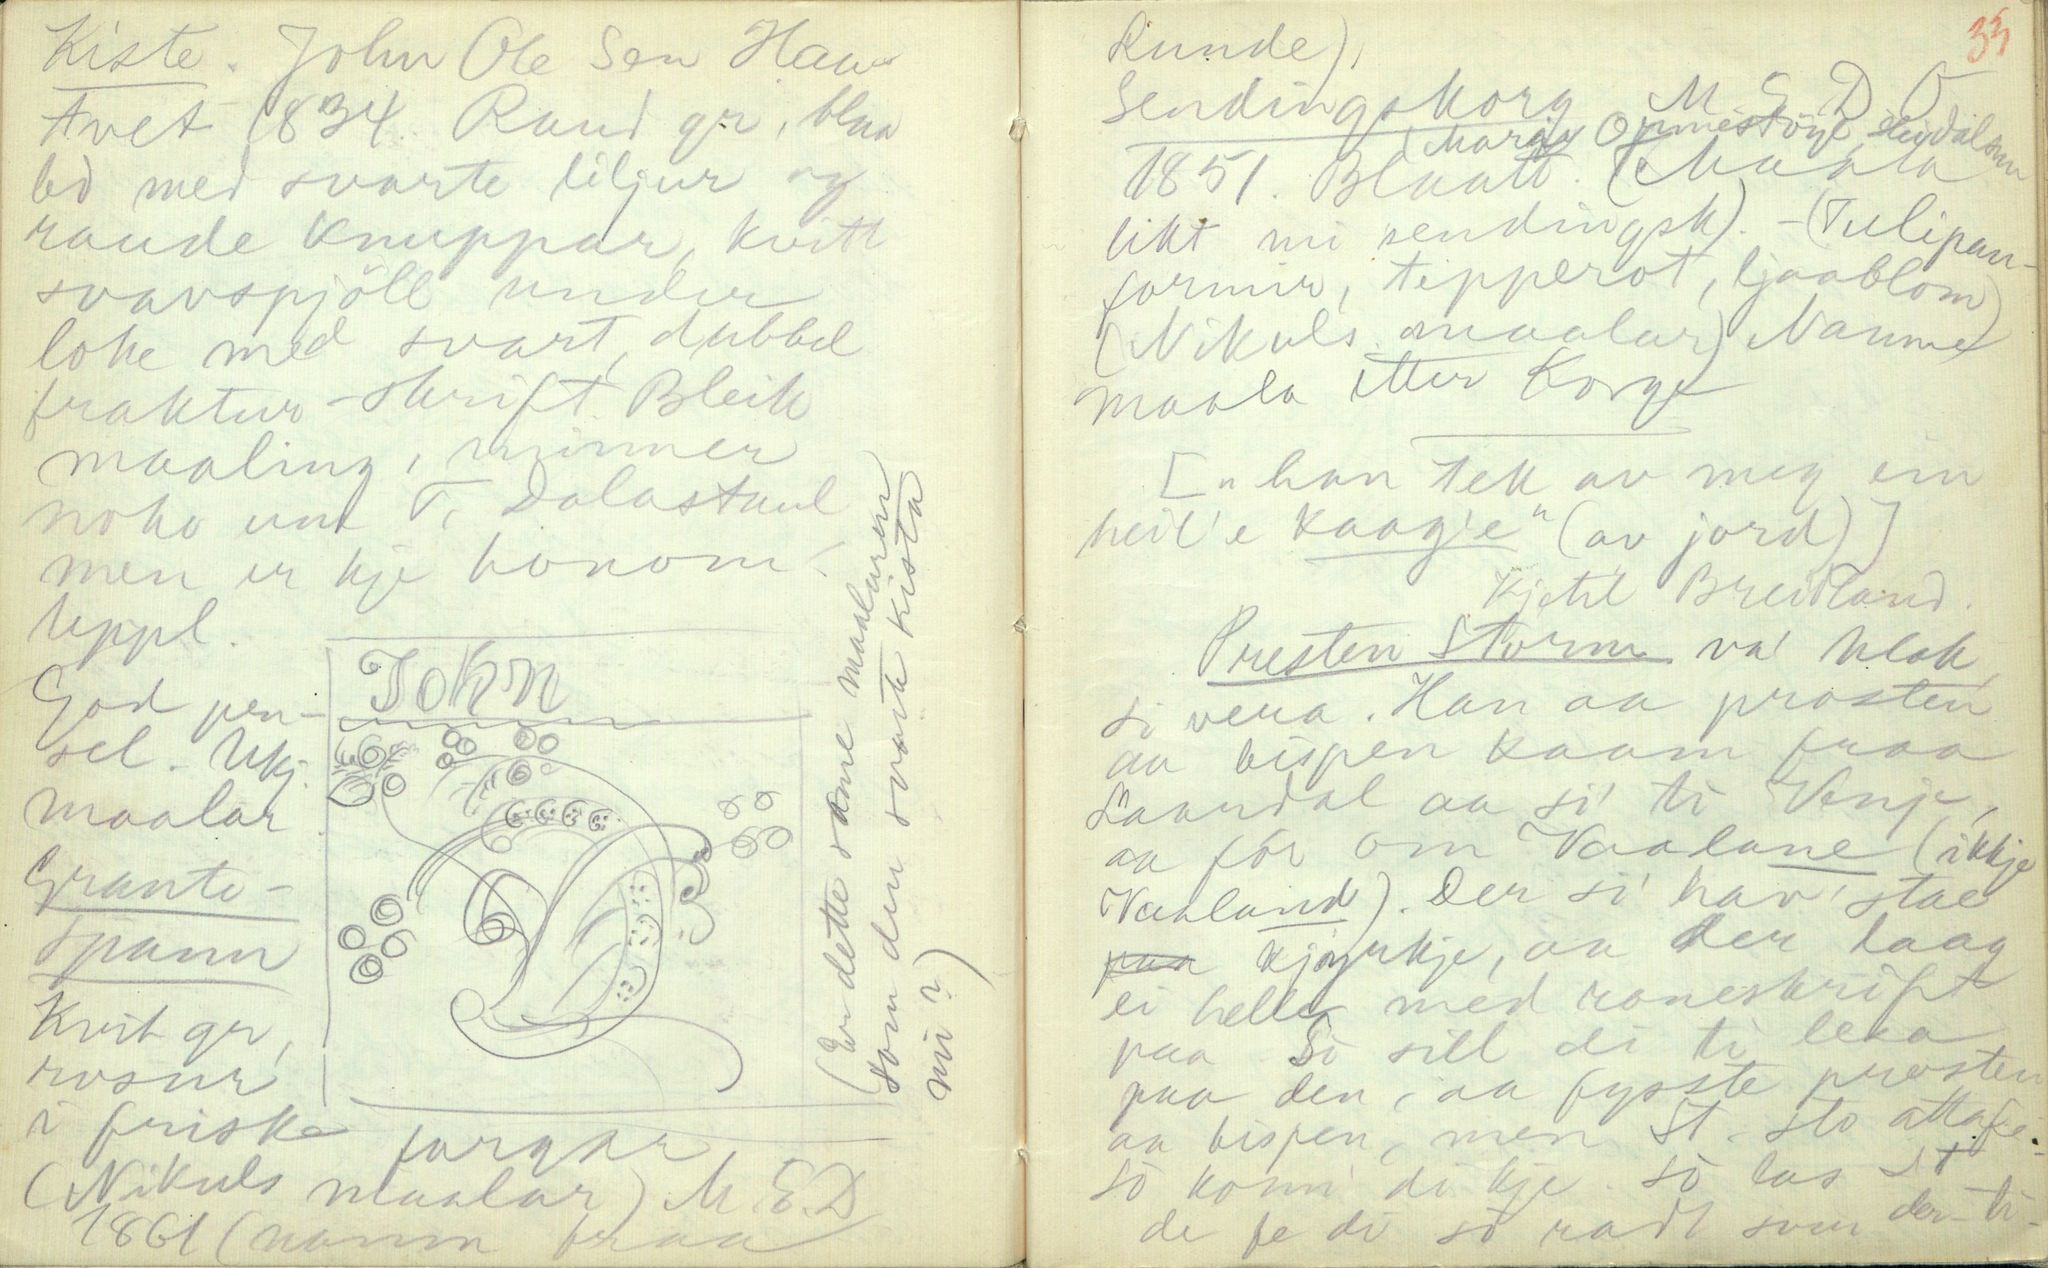 Kiste. John Ole Sen Hau-
tvet 1834. Raud gr, blaa
bd med svarte liljur og
raude knuppar, kvitt
svavspjöll under
loke med svart, dubbel
fraktur-skrift. Bleik
maaling, minner
noko um T. Dalastaul
men er kje honom.
Uppl.
God pen-
sel. Ukj.
maalar
John
Grante-
spann
Kvit gr,
rosur
i friske fargar
(Nikuls maalar) M.E.D
1861 (namn fraa
(Er dette same maalaren
som den svarte kista
mi?)
35
Lunde),
Sendingskorg M E D O
Margit Ormestöyl, Seldalom
1851. Blaatt. (Maala
likt mi sendingsk). - (Tulipan-
formir, tipperot, ljaablom)
(Nikuls maalar) Namne
maala etter Korge
["han tek av meg ein
heil'e kaagje" (av jord)]
Kjetil Breiland.
Presten Storm va' klok,
si vera. Han aa prosten
aa bispen kaam fraa
Laardal aa si' ti Vinje,
aa för om Vaalane (ikkje
Vaaland). Der si' hav' stae
paa kjyrkje, aa der laag
ei helle med roneskrift
paa. Si sill di ti lesa
paa den, aa fysste prosten
aa bispen, men St. sto attafe.
Sö konn' di kje. Sö las St
de fe di sö radt som den ti-